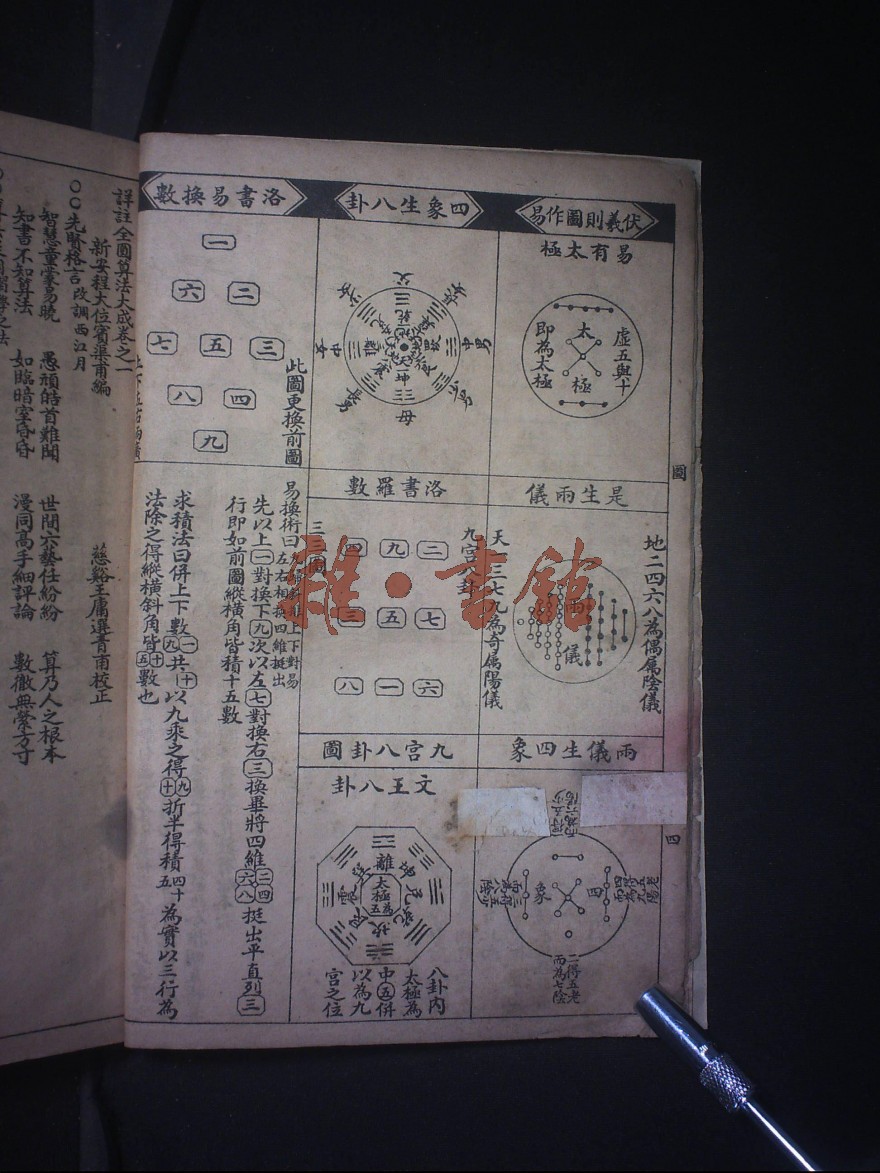 伏羲則圖作易
易有太極
虛五與十
太
極
即為太極
是生兩儀
地二四六八為偶屬陰儀
兩
儀
天一三七九為奇屬陽儀
兩儀生四象
四
象
二得五老
而為七陰
四象生八卦
父
乾
中男
坤
母
洛書羅數
九宮八卦
二
九
四
七
五
三
六
一
八
九宮八卦圖
文王八卦
離
太極為五
坎
八卦內
太極為
中五併
以為九
宮之位
洛書易換數
一
二
六
三
五
七
四
八
九
此圖更換前圖
易換術曰
左右相換四維挺出
先以上一對換下九次以左七對換右三換畢將四維二四六八挺出平直列三
行即如前圖縱橫角皆積十五數
求積法曰併上下數一九共十以九乘之得九十折半得積四十五為實以三行為
法除之得縱橫斜角皆十五數也
圖
四
詳註全圖算法大成卷之一
新安程大位賓渠甫編
慈谿王庸選青甫校正
○○先賢格言改調西江月
智慧童蒙易曉 愚頑皓首難聞 世間六藝任紛紛 算乃人之根本
知書不知算法 如臨暗室昏昏 漫同高手細評論 數徹無縈方寸